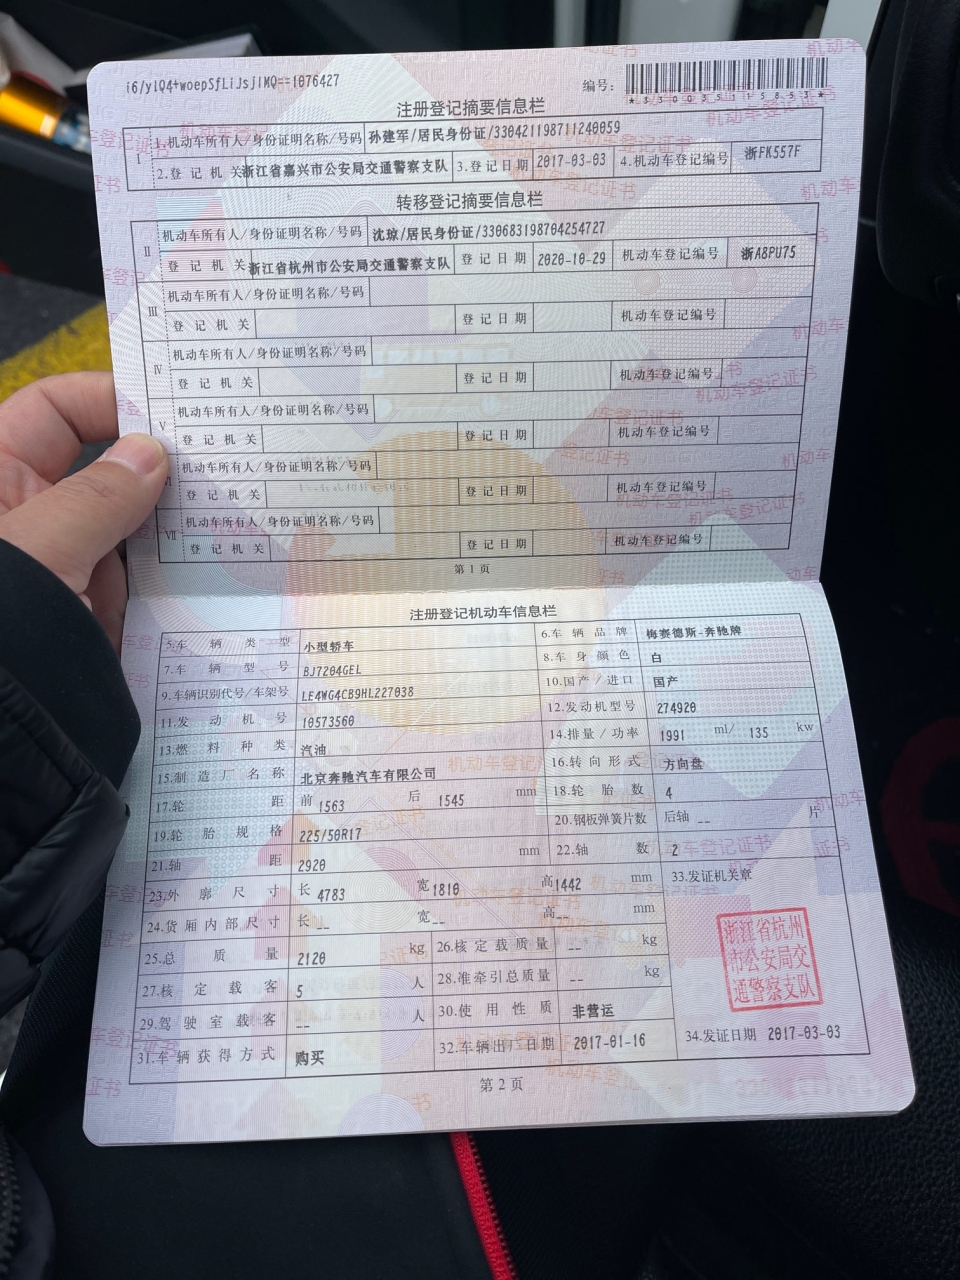 i6/ylQ4+woepSfLiJsjlMQ==1076427
编号：
注册登记摘要信息栏
Ⅰ 1.机动车所有人/身份证明名称/号码 孙建军/居民身份证/330421198711240059
2.登记机关 浙江省嘉兴市公安局交通警察支队 3.登记日期 2017-03-03 4.机动车登记编号 浙FK557F
转移登记摘要信息栏
Ⅱ 机动车所有人/身份证明名称/号码 沈琼/居民身份证/330683198704254727
登记机关 浙江省杭州市公安局交通警察支队 登记日期 2020-10-29 机动车登记编号 浙A8PU75
Ⅲ 机动车所有人/身份证明名称/号码
登记机关 登记日期 机动车登记编号
Ⅳ 机动车所有人/身份证明名称/号码
登记机关 登记日期 机动车登记编号
Ⅴ 机动车所有人/身份证明名称/号码
登记机关 登记日期 机动车登记编号
机动车所有人/身份证明名称/号码
登记机关 登记日期 机动车登记编号
Ⅶ 机动车所有人/身份证明名称/号码
登记机关 登记日期 机动车登记编号
第1页
注册登记机动车信息栏
5.车辆类型 小型轿车 6.车辆品牌 梅赛德斯-奔驰牌
7.车辆型号 BJ7204GEL 8.车身颜色 白
9.车辆识别代号/车架号 LE4WG4CB9HL227038 10.国产/进口 国产
11.发动机号 10573560 12.发动机型号 274920
13.燃料种类 汽油 14.排量/功率 1991 ml/ 135 kw
15.制造厂名称 北京奔驰汽车有限公司 16.转向形式 方向盘
17.轮距 前 1563 后 1545 mm 18.轮胎数 4
19.轮胎规格 225/50R17 20.钢板弹簧片数 后轴 -- 片
21.轴距 2920 mm 22.轴数 2
23.外廓尺寸 长 4783 宽 1810 高 1442 mm 33.发证机关章
24.货厢内部尺寸 长 -- 宽 -- 高 -- mm
25.总质量 2120 kg 26.核定载质量 -- kg
27.核定载客 5 人 28.准牵引总质量 -- kg
29.驾驶室载客 -- 人 30.使用性质 非营运
31.车辆获得方式 购买 32.车辆出厂日期 2017-01-16 34.发证日期 2017-03-03
浙江省杭州
市公安局交
通警察支队
第2页